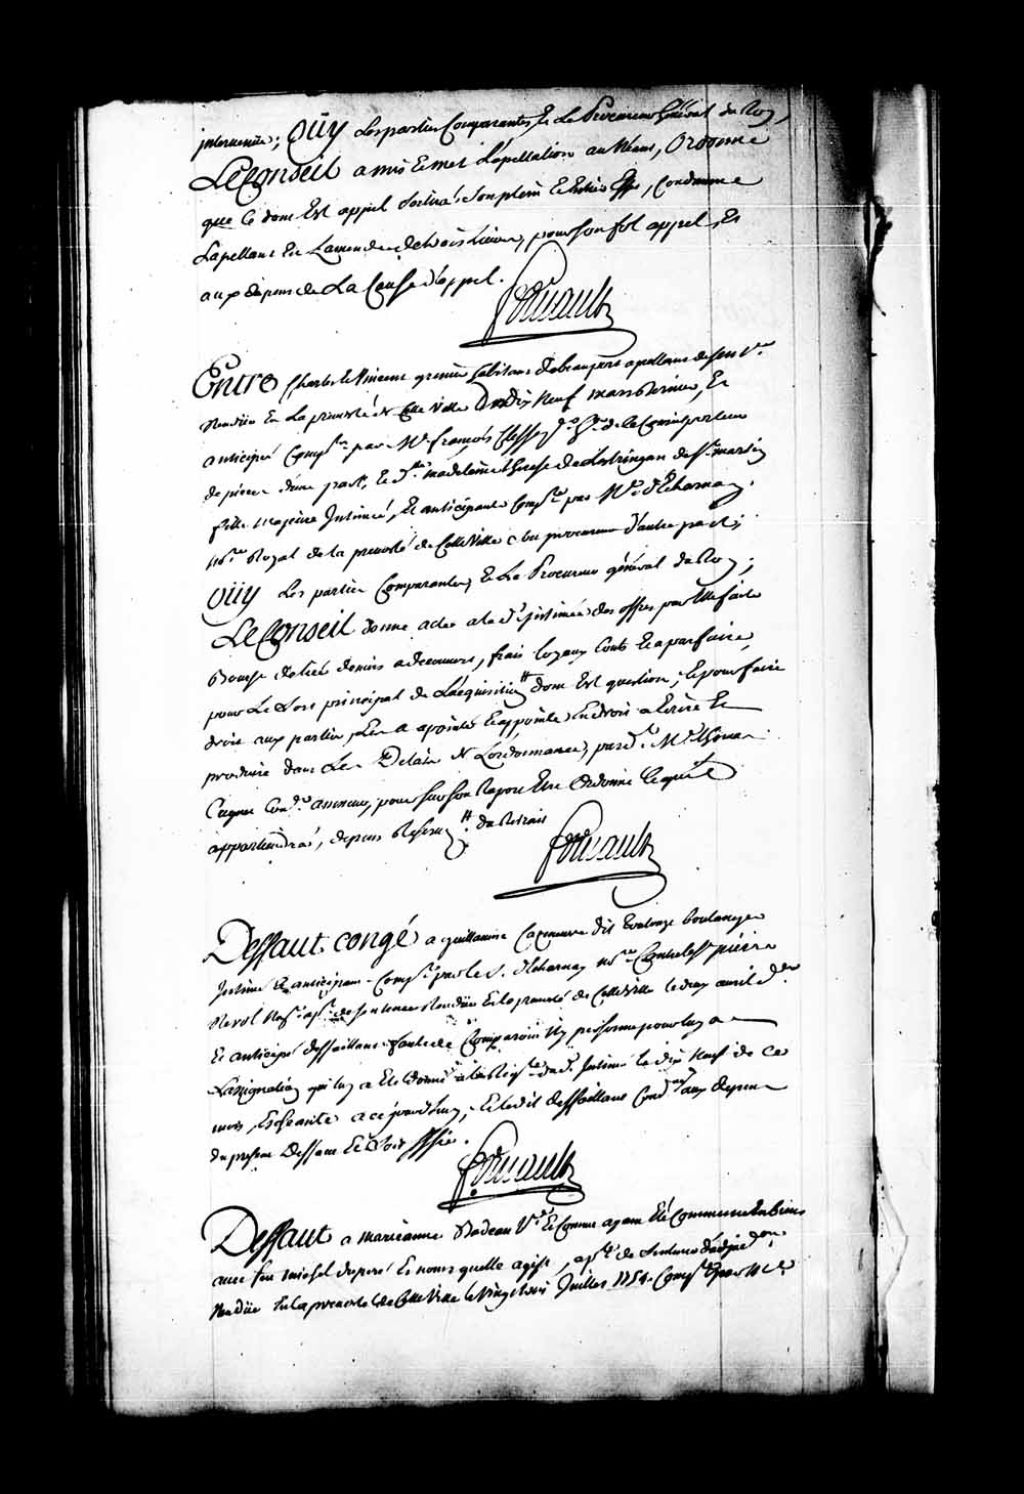 intervenüe; OÜY Les parties Comparantes, Et Le Procureur Général du Roy,
LE CONSEIL a mis Et met L'apellation au Néant, Ordonne
que Ce dont Est appel Sortira Son plein Et Entier Effet, Condamne
Lapellant En Lamende de trois Livres, pour Son fol appel, Et
aux dépens de La Cause d'appel.
Foucault
Entre Charles Vincent grenier habitant de beauport apellant de Sence
Rendüe En La prevosté de Cette Ville Dudix Neuf mars dernier, Et
anticipé Compt par Me françois Clesse porteur
de pieces d'une part, Et dlle madeleine Therese de Lestringan de St martin
fille majeure Intimée, Et anticipante Compte par Me
nore Royal de la prevosté de Cette Ville procureur d'autre part;
OÜY Les parties Comparantes, Et Le Procureur général du Roy;
LE CONSEIL donne acte a lad. Intimée des offres par Elle faite
Bourse deliée deniers a decouvert, frais loyaux Couts Et a parfaire,
pour Le Sort principal de L'acquisition dont Est question, Et pour faire
droit aux parties, Les a apointé Et appointe En droit a Ecrire Et
produire dans Les Delais de Lordonnance, pard. Me
Cugnet Coner assesseur, pour Sur Son Raport Etre Ordonné Ce quil
appartiendra, depens Reservez. du Retrait
Foucault
Deffaut congé a guillaume Cazeneuve dit boulanger
Intimé Et anticipant Compt par le S. nore Contre pierre
Revol Negt apt de Sentence Rendüe En la prevosté de Cette Ville le deux avril der
Et anticipé deffaillant faute de Comparoir Ny personne pour luy a
Lassignation qui luy a Eté donné a la Reqte dud. Intimé le dix Neuf de Ce
mois, Echeante a ce jourd'huy, Et ledit deffaillant Condné aux depens
du present Deffaut Et Soit Signifié.
Foucault
Deffaut a marieanne Nadeau Ve Et Comme ayant Eté Commune En biens
avec feu michel dupéré Et noms quelle agist, apte de Sentence
Rendüe En La prevosté de Cette Ville le Vingt trois Juillet 1754. Compte par Me